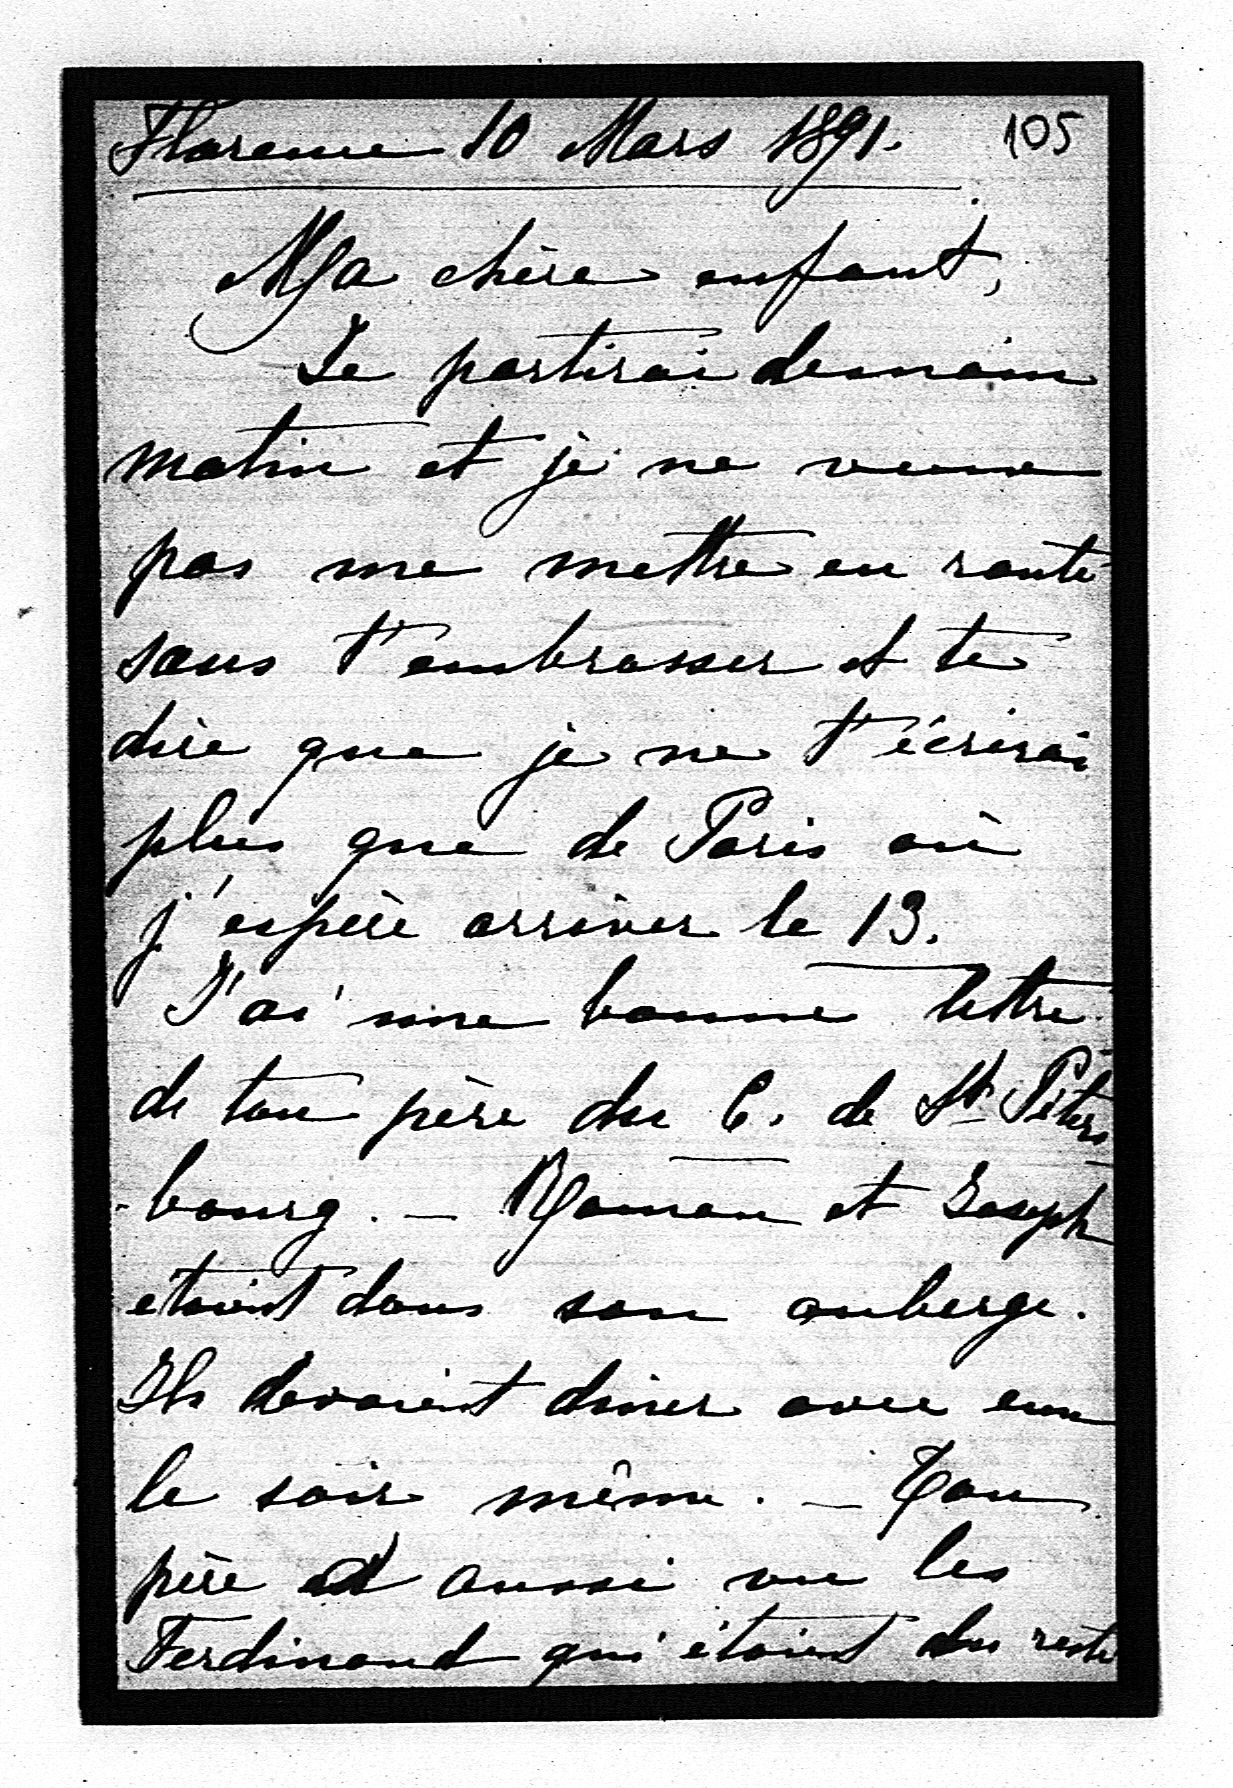 Florence 10 Mars 1891. 105
Ma chère enfant,
Je partirai demain
matin et je ne veux
pas me mettre en route
sans t'embrasser et te
dire que je ne t'écrirai
plus que de Paris où
j'espère arriver le 13.
J'ai une bonne lettre
de ton père du 6. de St Péters
-bourg. — Roman et Joseph
étaient dans son auberge.
Ils devaient diner avec eux
le soir même. — Ton
père a aussi vu les
Ferdinand qui étaient du reste